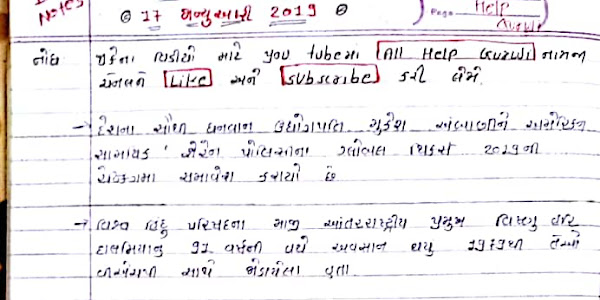 Notes
17 જાન્યુઆરી 2019
Page
Help
Guru
નોંધ દરેકના વિડીયો માટે you tubeમાં All Help Guru નામની
ચેનલને Like અને subscribe કરી લેજો
→ દેશના સૌથી ધનવાન ઉદ્યોગપતિ મુકેશ અંબાણીને અમેરિકન
સામાયિક ' ફોરેન પોલિસીના ગ્લોબલ થિંકર્સ 2019ની
સમાવેશ કરાયો છે
→ વિશ્વ હિંદુ પરિષદના માજી આંતરરાષ્ટ્રીય પ્રમુખ વિષ્ણુ હરિ
દાલમિયાનુ 91 વર્ષની વયે અવસાન થયુ 1979થી તેઓ
સાથે જોડાયેલા હતા.